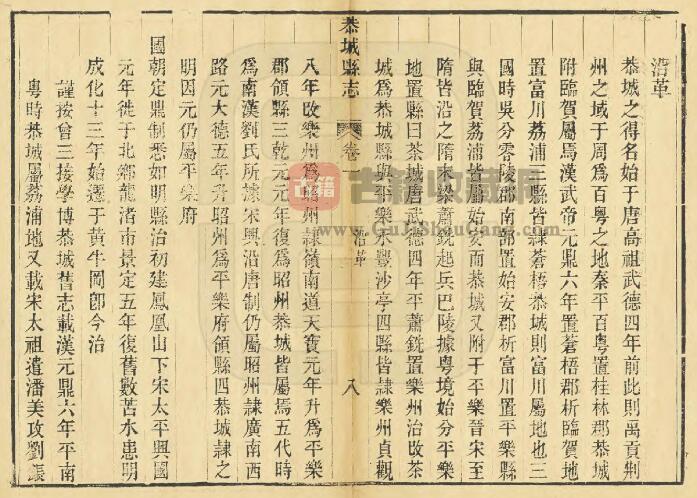 沿革
恭城之得名始于唐高祖武德四年前此則禹貢荆
州之域于周爲百粤之地秦平百粤置桂林郡恭城
附臨賀屬焉漢武帝元鼎六年置蒼梧郡析臨賀地
置富川荔浦三縣皆隸蒼梧恭城則富川屬地也三
國時吳分零陵郡南部置始安郡析富川置平樂縣
與臨賀荔浦皆屬始安而恭城又附于平樂晉宋至
隋皆沿之隋末梁蕭銑起兵巴陵據粤境始分平樂
地置縣曰茶城唐武德四年平蕭銑置樂州治改茶
城爲恭城縣與平樂永豐沙亭四縣皆隸樂州貞觀
恭城縣志
卷一
沿革
八
八年改樂州爲昭州隸嶺南道天寶元年升爲平樂
郡領縣三乾元元年復爲昭州恭城皆屬焉五代時
爲南漢劉氏所據宋興沿唐制仍屬昭州隸廣南西
路元大德五年升昭州爲平樂府領縣四恭城隸之
明因元仍屬平樂府
國朝定鼎制悉如明縣治初建鳳凰山下宋太平興國
元年徙于北鄉龍渚市景定五年復舊數苦水患明
成化十三年始遷于黃牛岡卽今治
謹按會三接學博恭城舊志載漢元鼎六年平南
粤時恭城屬荔浦地又載宋太祖遣潘美攻劉鋹
古籍
古籍收藏网
www.GuJiShouCang.com